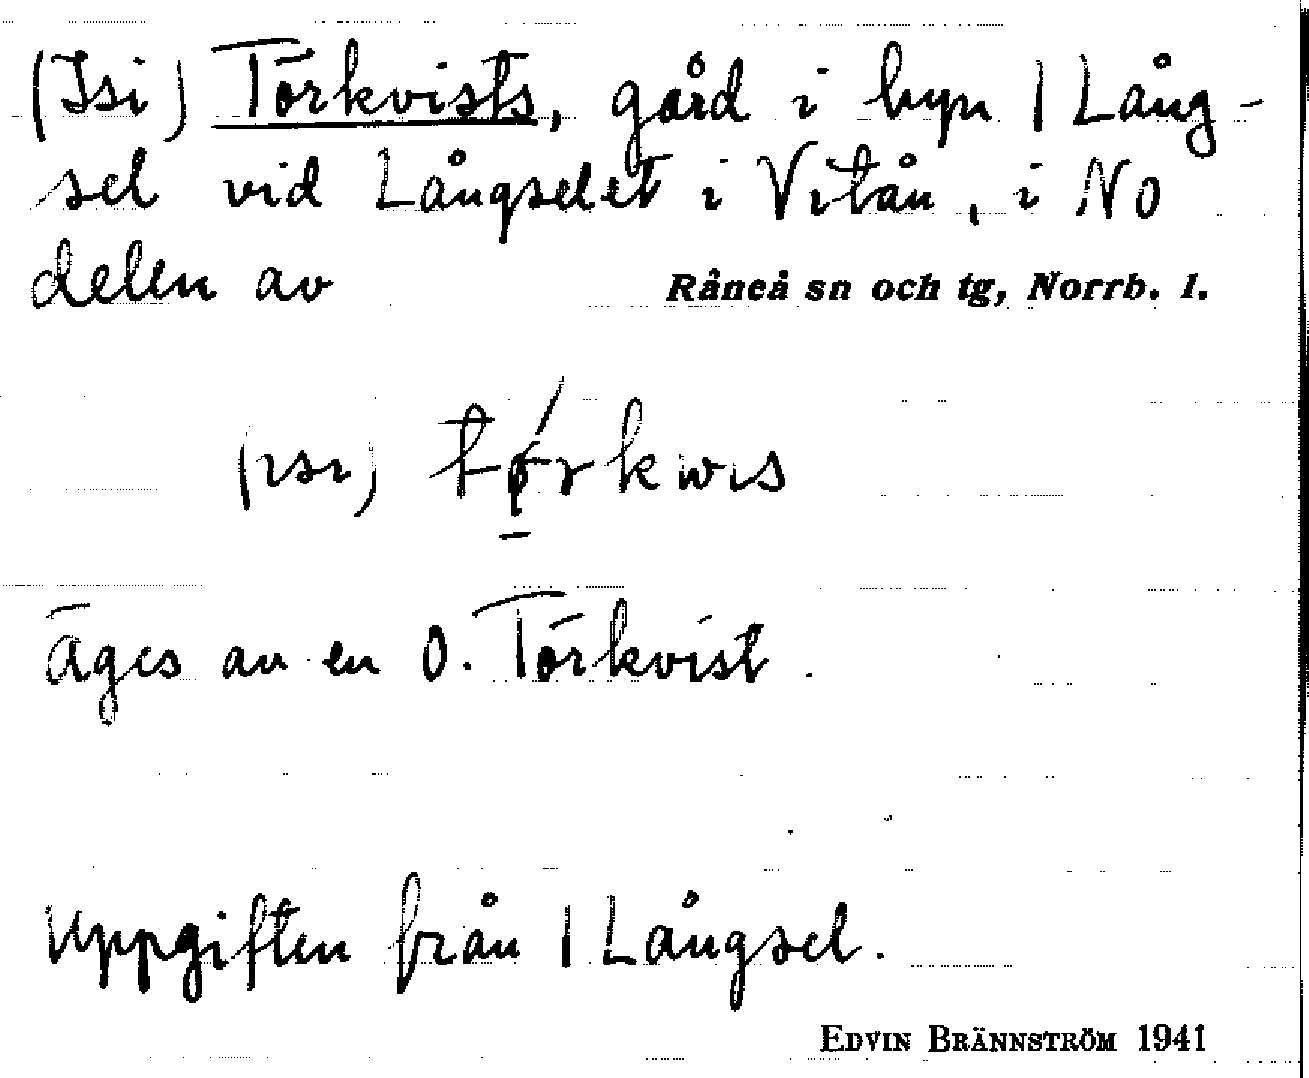 (Isi) Törkvists, gård i byn 1 Lång-
sel vid Långselet i Vitån, i NO
delen av Råneå sn och tg, Norrb. l.
(ɪsɪ) tǿrkwɪs
Äges av en O. Törkvist.
Uppgiften från 1 Långsel.
EDVIN BRÄNNSTRÖM 1941